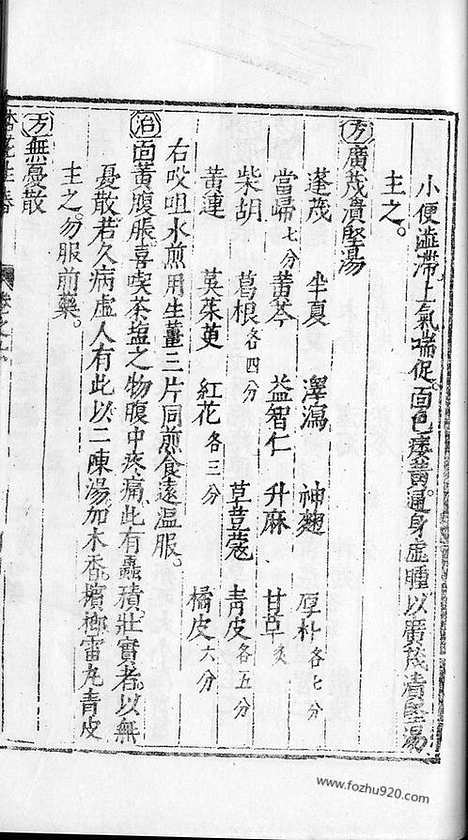 小便澁滯上氣喘促面色痿黃通身虛腫以廣茂潰堅湯
主之。
方廣茂潰堅湯
蓬茂 半夏 澤瀉 神麯 厚朴各七分
當歸七分 黃芩 益智仁 升麻 甘草炙
柴胡 葛根各四分 草荳蔲 靑皮各五分
黃連 吳茱萸 紅花各三分 橘皮六分
右㕮咀水煎用生薑三片同煎食遠溫服。
治面黃腹脹喜喫茶塩之物腹中疼痛此有蟲積壯實者以無
憂散若久病虛人有此以二陳湯加木香檳榔雷丸青皮
主之勿服前藥。
方無憂散
www.fozhu920.com